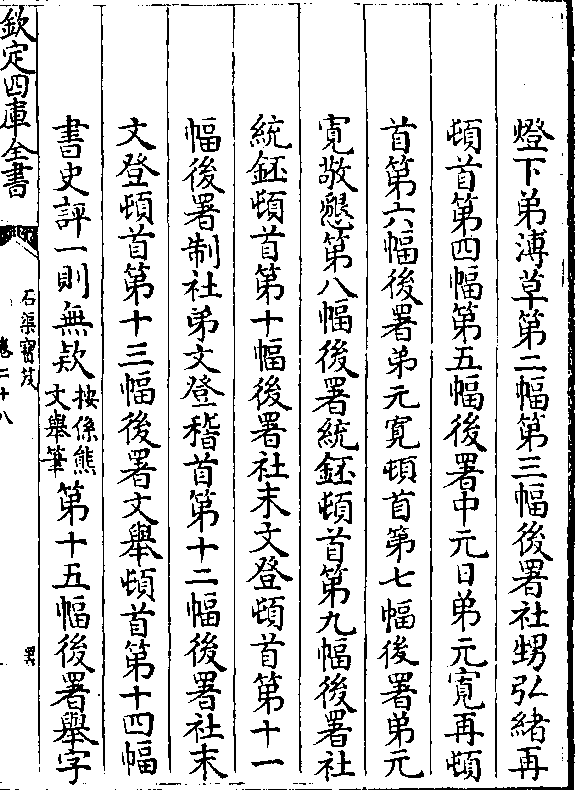 燈下弟溥草第二幅第三幅後署社甥弘緒再
頓首第四幅第五幅後署中元日弟元寛再頓
首第六幅後署弟元寛頓首第七幅後署弟元
寛敬懇第八幅後署統鉟頓首第九幅後署社
統鉟頓首第十幅後署社末文登頓首第十一
幅後署制社弟文登稽首第十二幅後署社末
文登頓首第十三幅後署文舉頓首第十四幅
書史評一則無欵按係熊文舉筆第十五幅後署舉字
欽定四庫全書
石渠寶笈
卷二十八